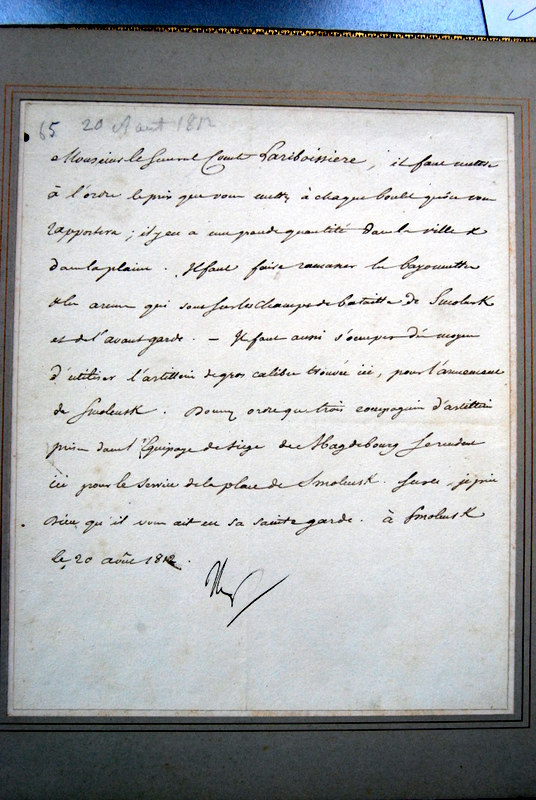 65 20 Aout 1812
Monsieur le General Comte Lariboissiere, il faut mettre
à l'ordre le prix que vous mettez à chaque boulet qu'on vous
rapportera ; il y en a une grande quantité dans la ville &
dans la plaine. Il faut faire ramasser les bayonnettes
& les armes qui sont sur les champs de bataille de Smolensk
et de l'avant garde. — Il faut aussi s'occuper du moyen
d'utiliser l'artillerie de gros calibre trouvée ici, pour l'armement
de Smolensk. Donnez ordre que trois compagnies d'artillerie
prises dans l'Equipage de siege de Magdebourg se rendent
ici pour le service de la place de Smolensk. Sur ce, je prie
Dieu qu'il vous ait en sa sainte garde. à Smolensk
le 20 août 1812.